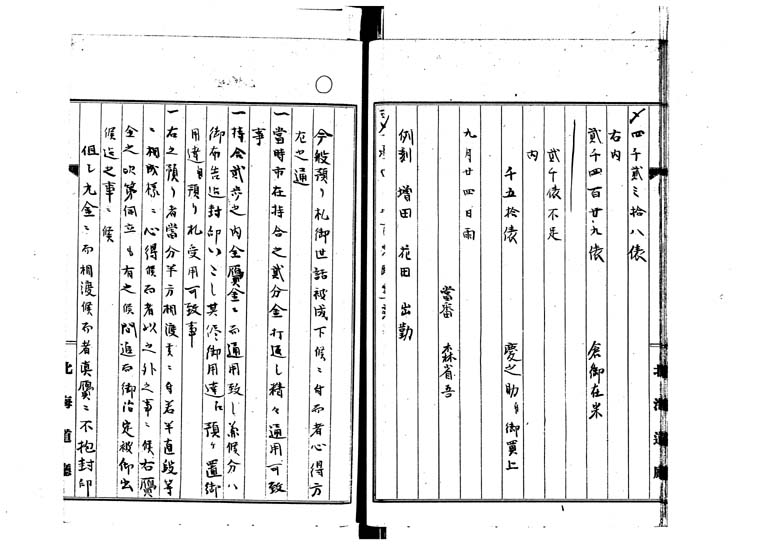 〆四千貳百三拾八俵
右内
貳千四百廿九俵 倉御在米
貳千俵不足
内
千五拾俵 慶之助ゟ御買上
九月廿四日雨
當番 森省吾
例刻 増田 花田 出勤
北海道廳
今般預り札御世話被成下候ニ付而者心得方
左之通
一當時市在持合之貳分金打込し精々通用可致
事
一持合貳歩之内全贋金ニ而通用致し兼候分ハ
御布告迄封印いたし其儘御用達江預ケ置御
用達ゟ預り札受用可致事
一右之預り者當分半方相渡
相成様ニ心得候而者以之外之事ニ候右贋
金之次第伺立も有之候間追而御治定被仰出
候迄之事ニ候
但し九金ニ而相渡候而者真贋ニ不抱封印
北海道廳